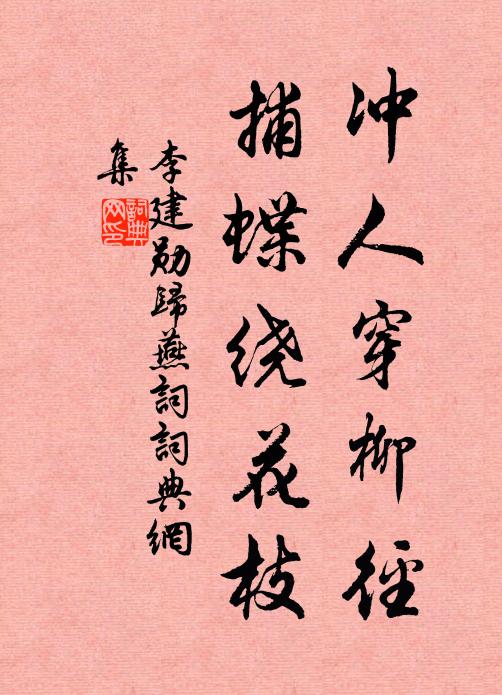 冲人穿柳径
捕蝶绕花枝
李建勋歸燕詞詞典網
集
詞典
网印